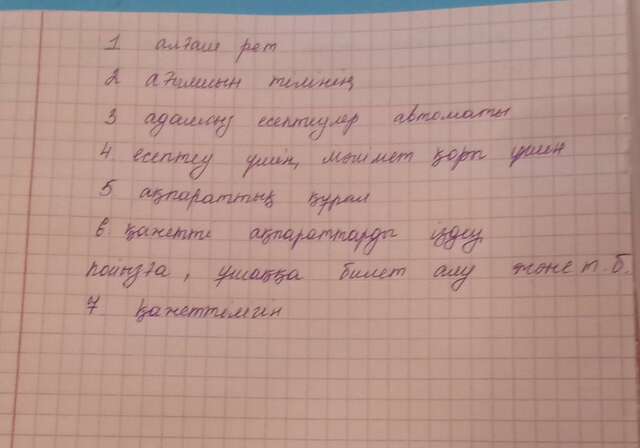 1 алғаш рет
2 ағылшын тілінің
3 адамсыз есептеулер автоматы
4. есептеу үшін, мәлімет қоры үшін
5 ақпараттық құрал
6. қажетте ақпараттарды іздеу,
поызға, ұшаққа билет алу және т.б.
7 қажеттемен